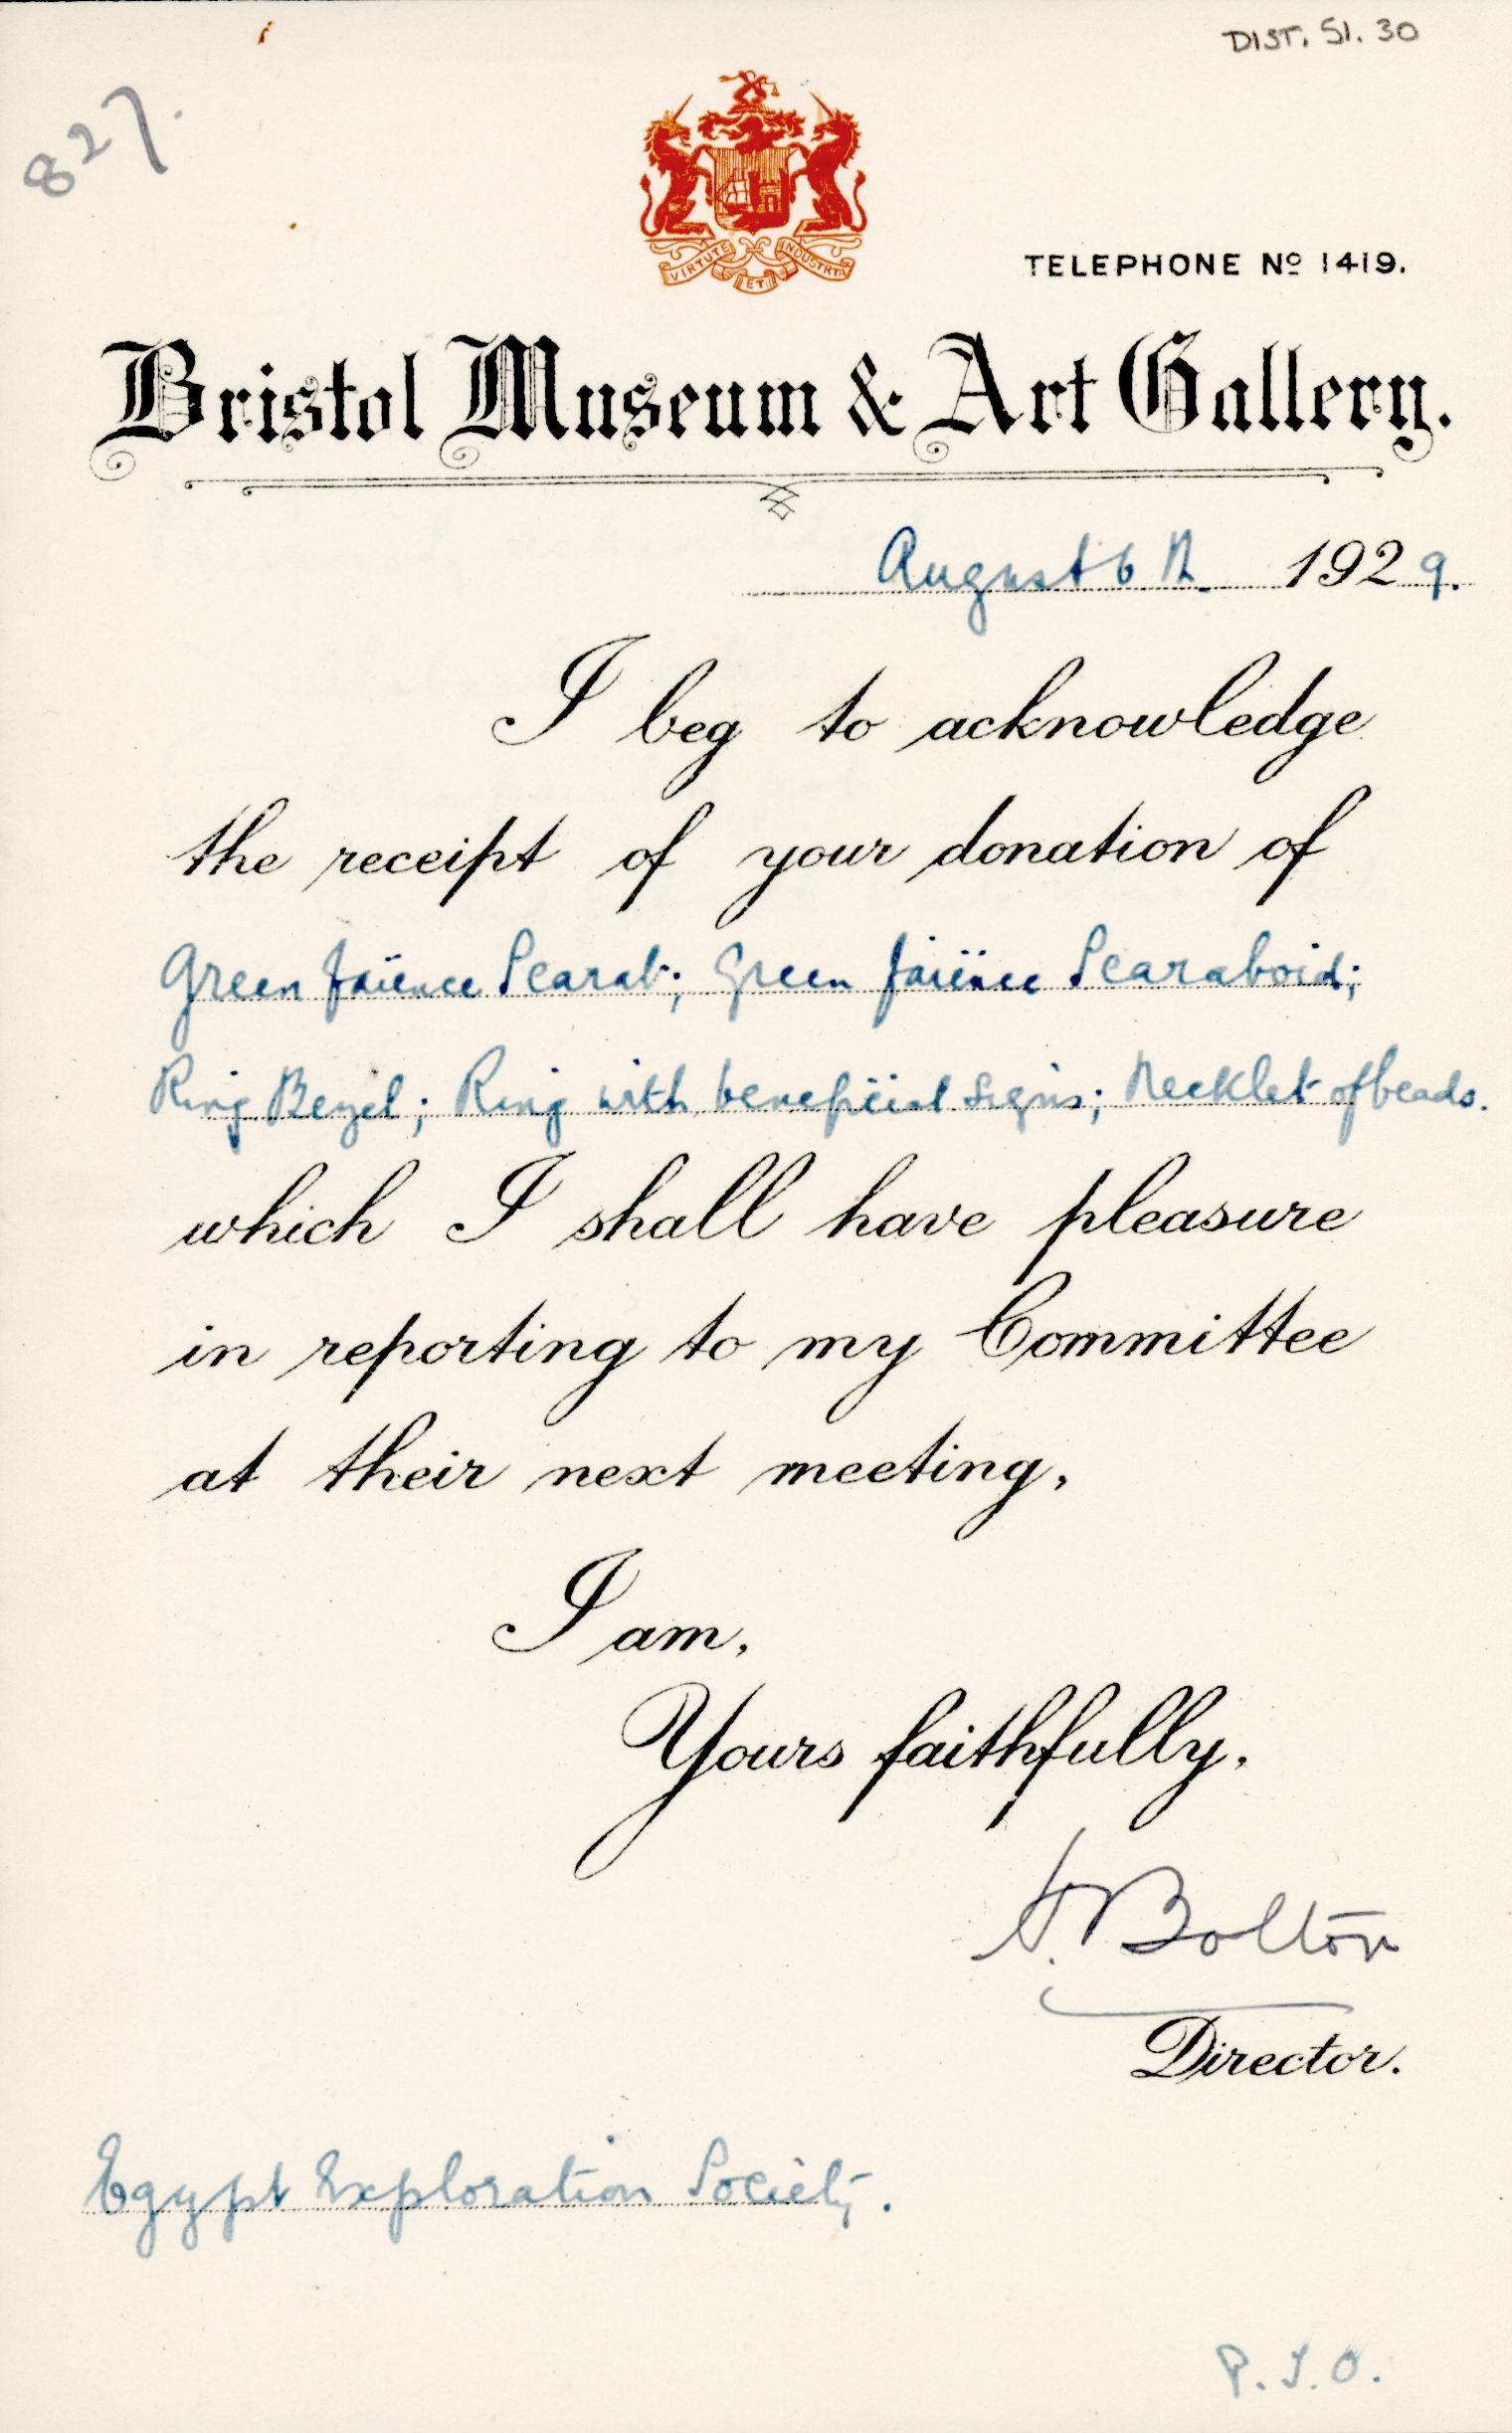 DIST. 51. 30
827.
VIRTUTE ET INDUSTRIA
TELEPHONE Nº 1419.
Bristol Museum & Art Gallery.
August 6th 1929.
I beg to acknowledge
the receipt of your donation of
Green faïence Scarab; Green faïence Scaraboid;
Ring Bezel; Ring with beneficial signs; Necklet of beads.
which I shall have pleasure
in reporting to my Committee
at their next meeting,
I am,
Yours faithfully,
H. Bolton
Director.
Egypt Exploration Society.
P.T.O.